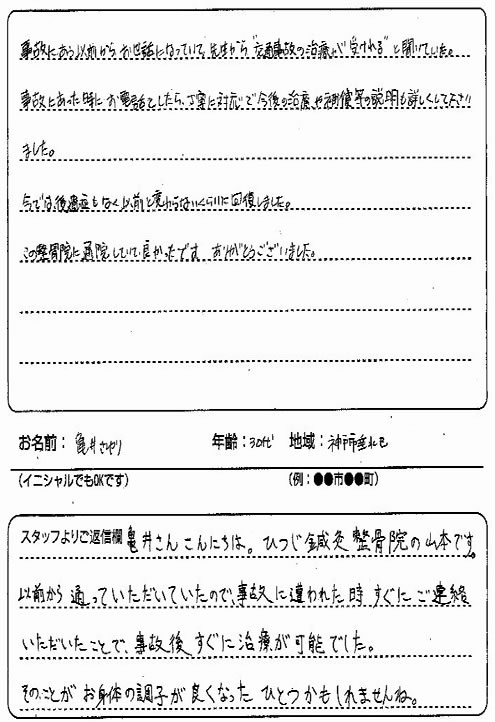 事故にある以前からお世話になっていて、先生から“交通事故の治療が受けれる”と聞いていた。
事故にあった時にお電話でしたら、丁寧に対応で今後の治療や補償等の説明も詳しくして下さい
ました。
今では、後遺症もなく以前と変わらないくらいに回復しました。
この整骨院に通院していて良かったです ありがとうございました。
お名前: 亀井さゆり 年齢:30代 地域: 神戸市垂水区
(イニシャルでもOKです) (例:●●市●●町)
スタッフよりご返信欄 亀井さんこんにちは。ひつじ鍼灸整骨院の山本です。
以前から通っていただいていたので、事故に遭われた時すぐにご連絡
いただいたことで、事故後すぐに治療が可能でした。
そのことがお身体の調子が良くなったひとつかもしれませんね。